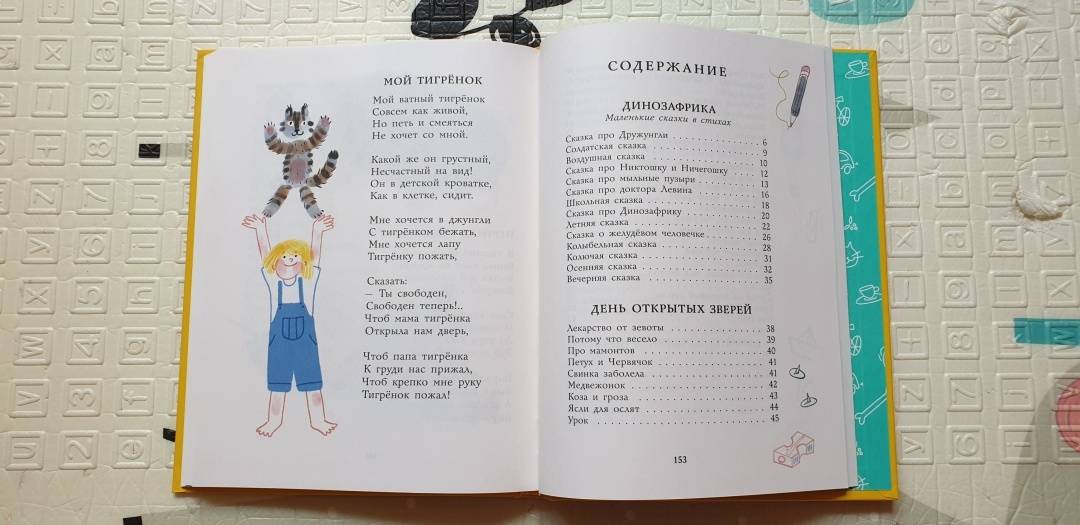 МОЙ ТИГРЁНОК
Мой ватный тигрёнок
Совсем как живой,
Но петь и смеяться
Не хочет со мной.
Какой же он грустный,
Несчастный на вид!
Он в детской кроватке,
Как в клетке, сидит.
Мне хочется в джунгли
С тигрёнком бежать,
Мне хочется лапу
Тигрёнку пожать,
Сказать:
— Ты свободен,
Свободен теперь!..
Чтоб мама тигрёнка
Открыла нам дверь,
Чтоб папа тигрёнка
К груди нас прижал,
Чтоб крепко мне руку
Тигрёнок пожал!
СОДЕРЖАНИЕ
ДИНОЗАФРИКА
Маленькие сказки в стихах
Сказка про Дружунгли 6
Солдатская сказка 9
Воздушная сказка 10
Сказка про Никтошку и Ничегошку 12
Сказка про мыльные пузыри 13
Сказка про доктора Левина 16
Школьная сказка 18
Сказка про Динозафрику 20
Летняя сказка 22
Сказка о желудёвом человечке 26
Колыбельная сказка 28
Колючая сказка 31
Осенняя сказка 32
Вечерняя сказка 35
ДЕНЬ ОТКРЫТЫХ ЗВЕРЕЙ
Лекарство от зевоты 38
Потому что весело 39
Про мамонтов 40
Петух и Червячок 41
Свинка заболела 41
Медвежонок 42
Коза и гроза 43
Ясли для ослят 44
Урок 45
153